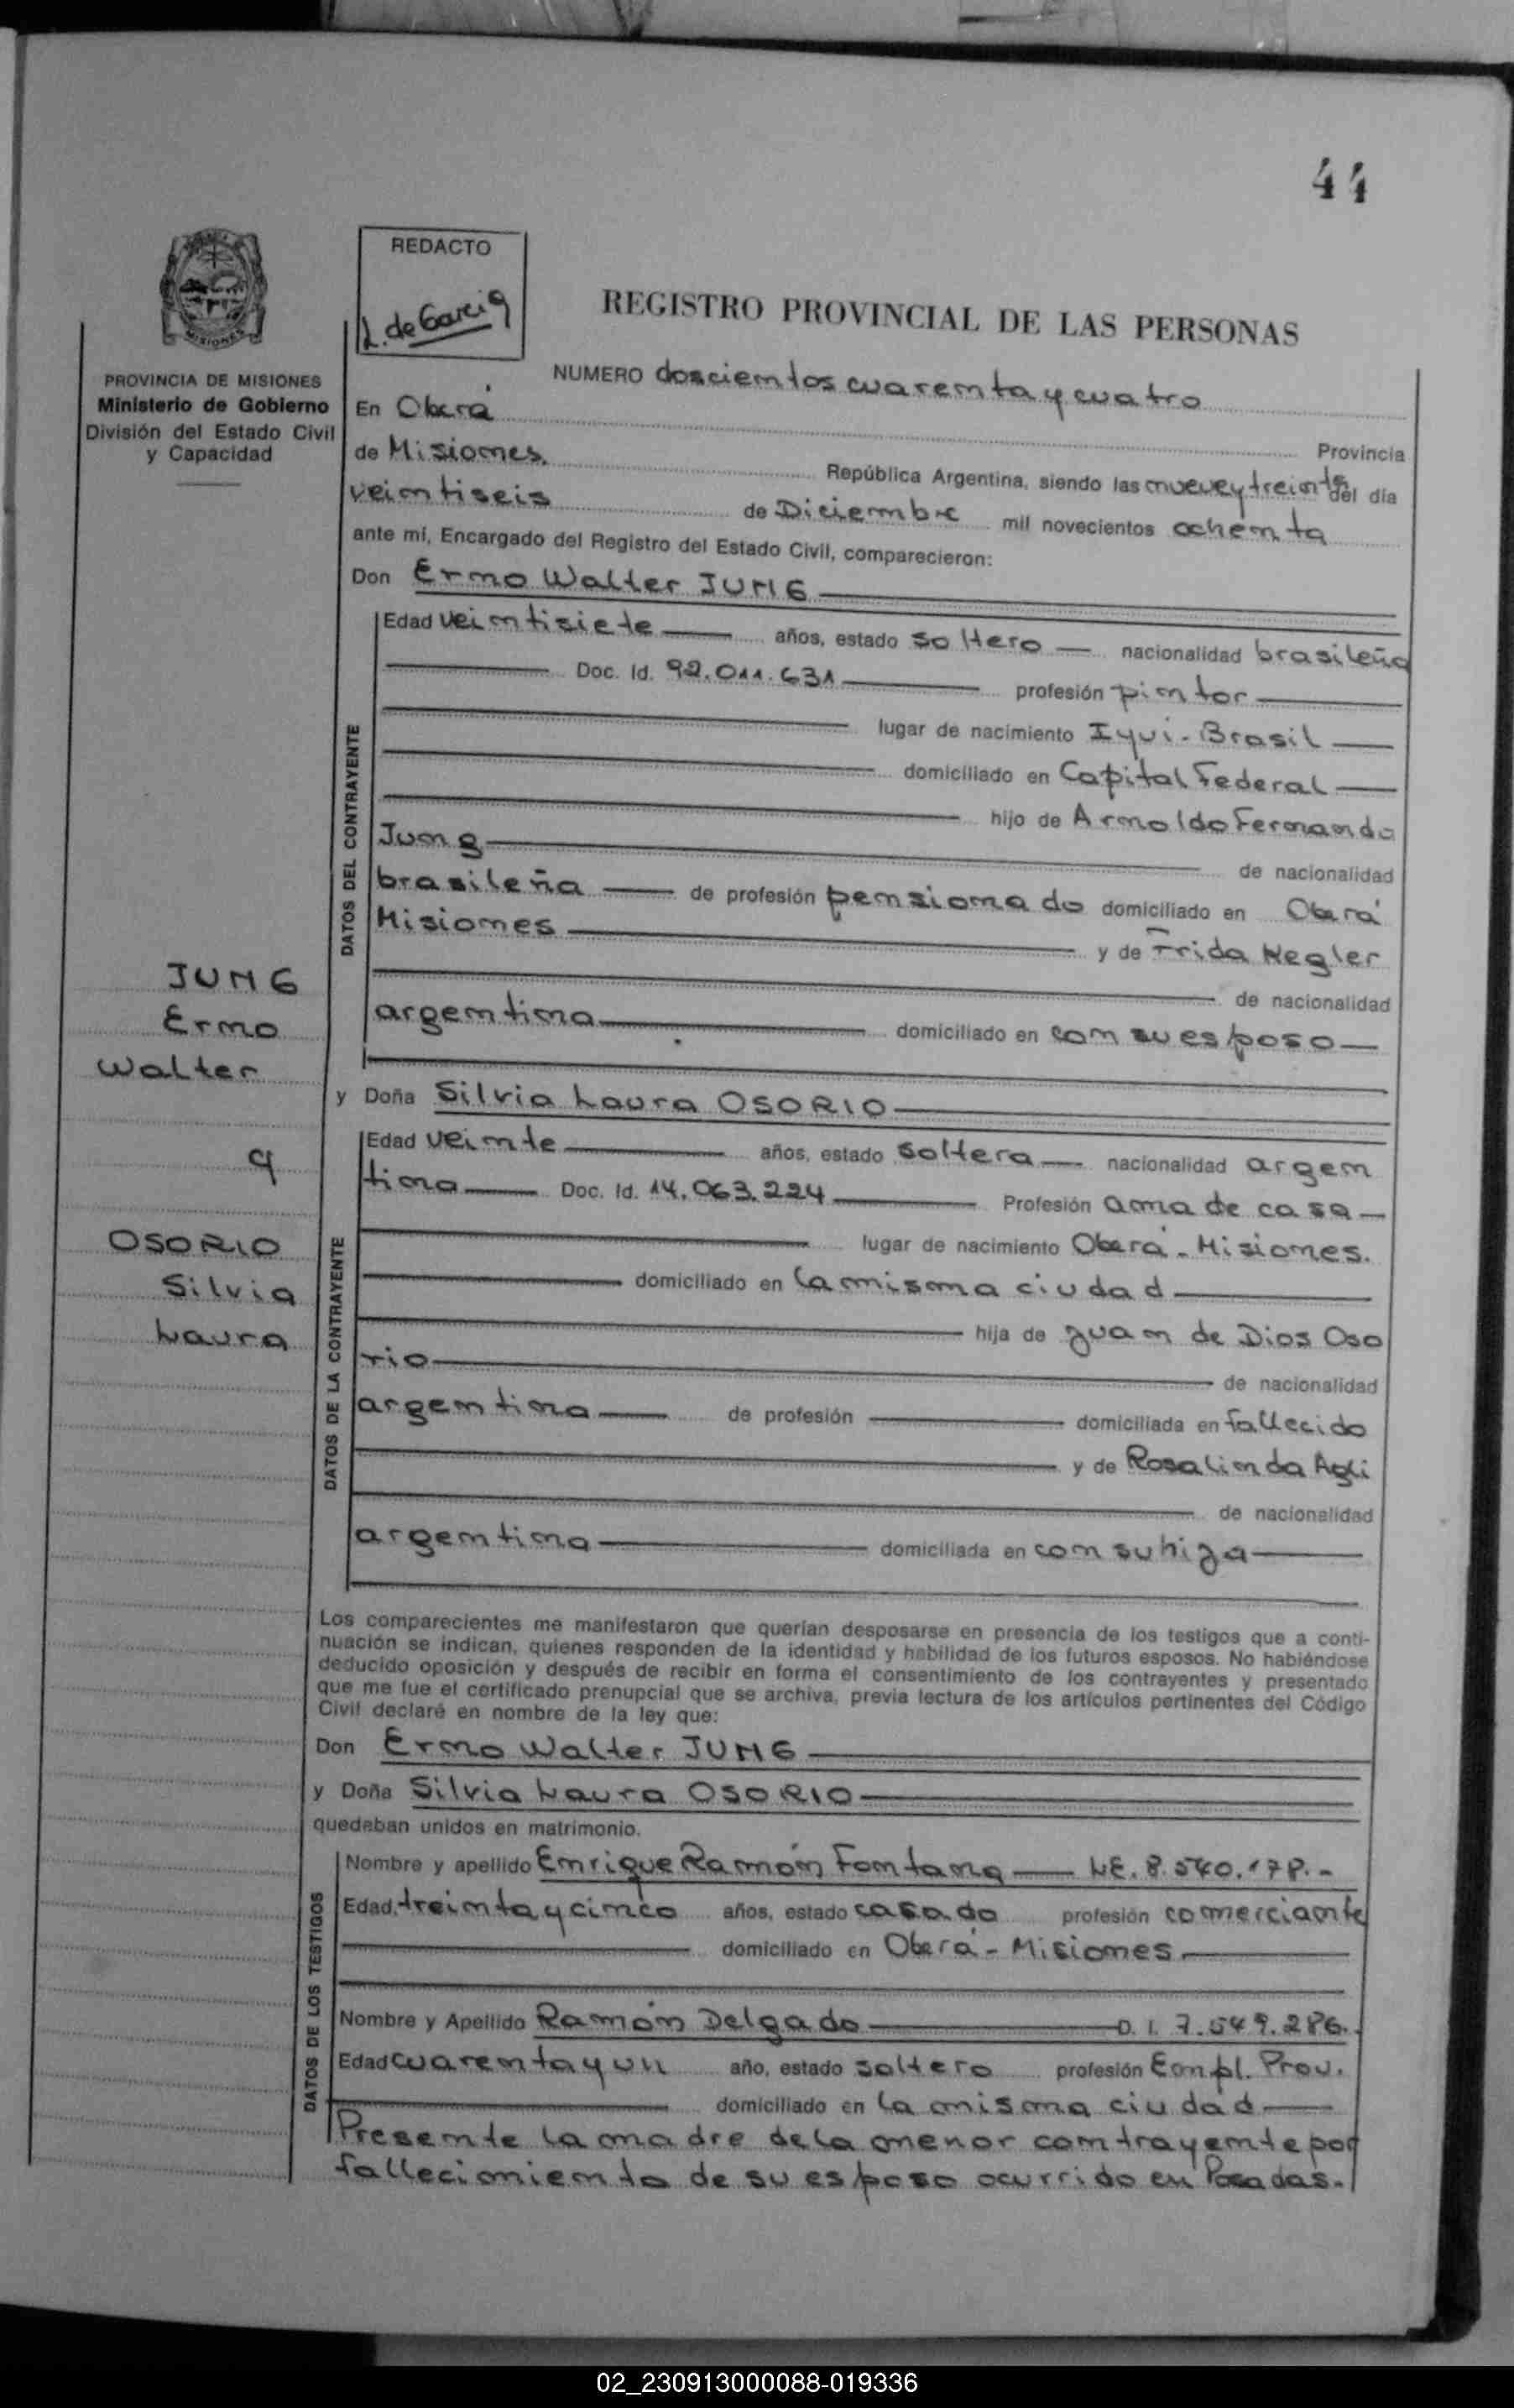 44
REDACTO
L. de Garcia
REGISTRO PROVINCIAL DE LAS PERSONAS
MISIONES
PROVINCIA DE MISIONES
Ministerio de Gobierno
División del Estado Civil
y Capacidad
NUMERO doscientos cuarenta y cuatro
En Oberá Provincia
de Misiones. República Argentina, siendo las nueve y treinta del día
veintiseis de Diciembre mil novecientos ochenta
ante mí, Encargado del Registro del Estado Civil, comparecieron:
Don Erno Walter JUNG
DATOS DEL CONTRAYENTE
Edad veintisiete años, estado soltero nacionalidad brasileña
Doc. Id. 92.011.631 profesión pintor
lugar de nacimiento Iyui - Brasil
domiciliado en Capital Federal
hijo de Arnoldo Fernando
Jung de nacionalidad
brasileña de profesión pensionado domiciliado en Oberá
Misiones y de Frida Kegler
de nacionalidad
argentina domiciliado en con su esposo
y Doña Silvia Laura OSORIO
JUNG
Erno
Walter
c/
OSORIO
Silvia
Laura
DATOS DE LA CONTRAYENTE
Edad veinte años, estado soltera nacionalidad argen
tina Doc. Id. 14.063.224 Profesión ama de casa
lugar de nacimiento Oberá - Misiones.
domiciliado en la misma ciudad
hija de Juan de Dios Oso
rio de nacionalidad
argentina de profesión domiciliada en fallecido
y de Rosalinda Agli
de nacionalidad
argentina domiciliada en con su hija
Los comparecientes me manifestaron que querían desposarse en presencia de los testigos que a conti-
nuación se indican, quienes responden de la identidad y habilidad de los futuros esposos. No habiéndose
deducido oposición y después de recibir en forma el consentimiento de los contrayentes y presentado
que me fue el certificado prenupcial que se archiva, previa lectura de los artículos pertinentes del Código
Civil declaré en nombre de la ley que:
Don Erno Walter JUNG
y Doña Silvia Laura OSORIO
quedaban unidos en matrimonio.
DATOS DE LOS TESTIGOS
Nombre y apellido Enrique Ramón Fontana LE. 8.540.178.-
Edad treinta y cinco años, estado casado profesión comerciante
domiciliado en Oberá - Misiones
Nombre y Apellido Ramón Delgado D.I. 7.549.286.
Edad cuarenta y un año, estado soltero profesión Empl. Prov.
domiciliado en la misma ciudad
Presente la madre de la menor contrayente por
fallecimiento de su esposo ocurrido en Posadas.
02_230913000088-019336